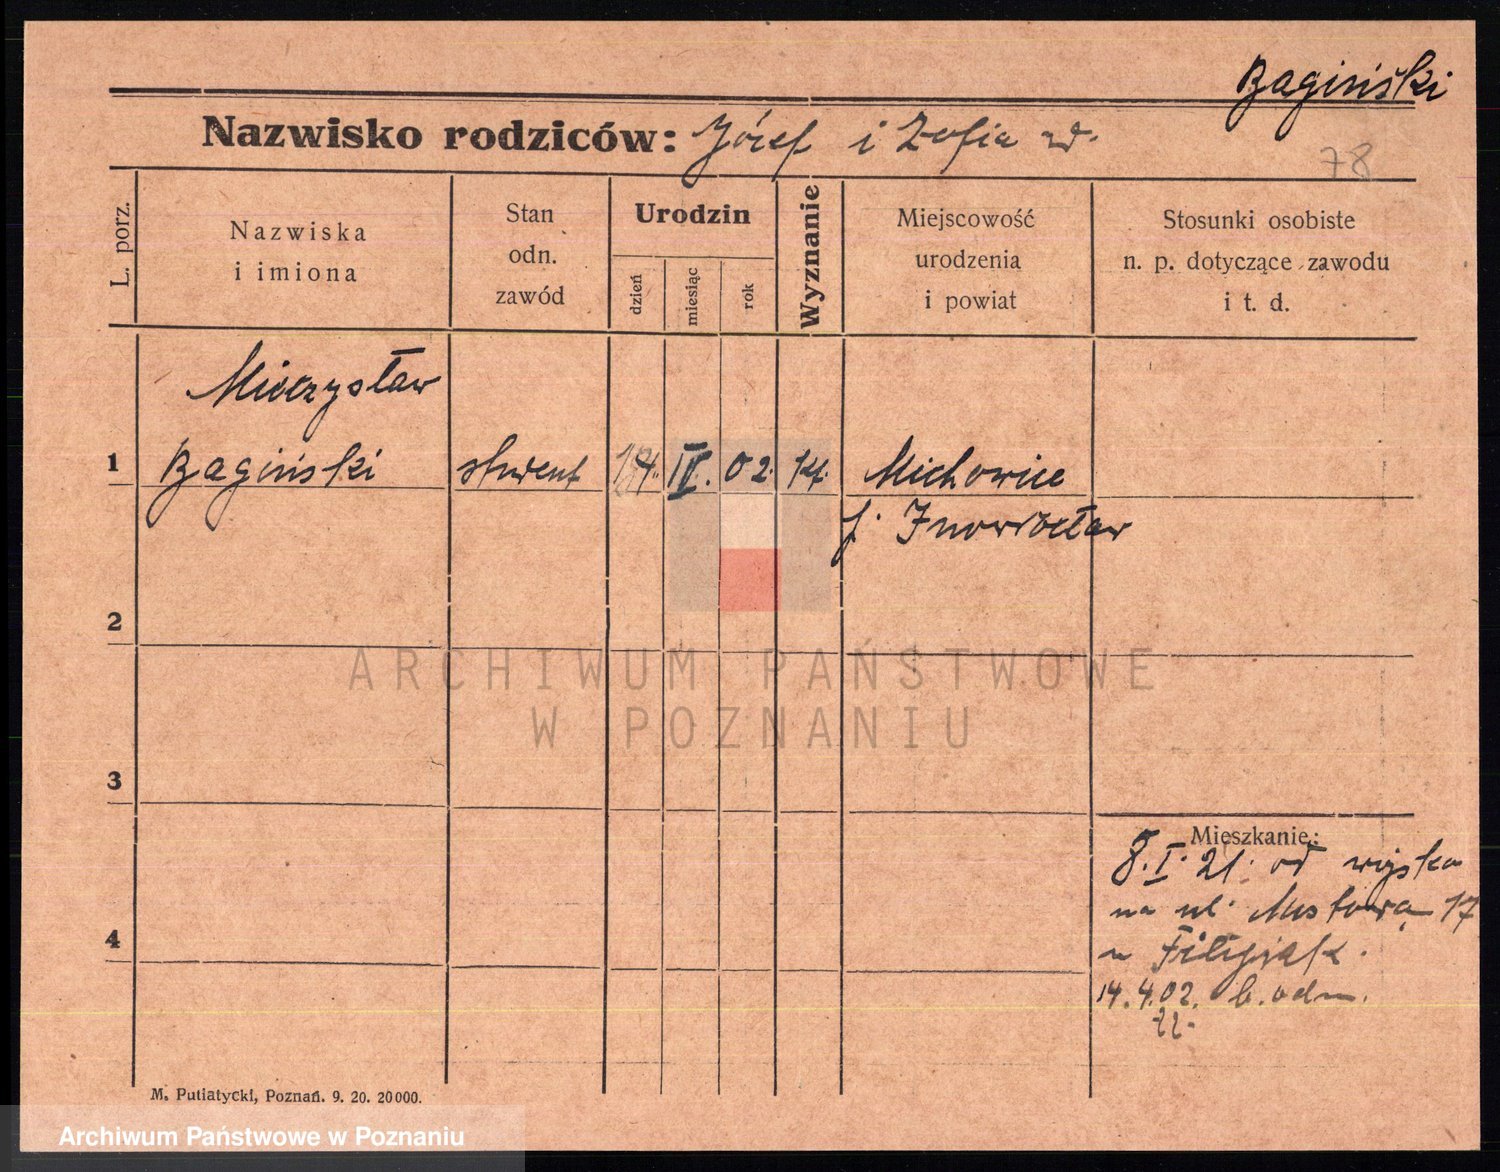 Bagiński
Nazwisko rodziców: Józef i Zofia w.
78
L. porz.
Nazwiska
i imiona
Stan
odn.
zawód
Urodzin
dzień
miesiąc
rok
Wyznanie
Miejscowość
urodzenia
i powiat
Stosunki osobiste
n. p. dotyczące zawodu
i t. d.
Mieczysław
1 Bagiński student 14. IV. 02. kt. Michowice
p. Inowrocław
2
ARCHIWUM PAŃSTWOWE
W POZNANIU
3
4
Mieszkanie:
8. I. 21. od wojska
na ul. 17
u Filipiak.
14. 4. 02. b. odm.
22-
M. Putiatycki, Poznań. 9. 20. 20000.
Archiwum Państwowe w Poznaniu